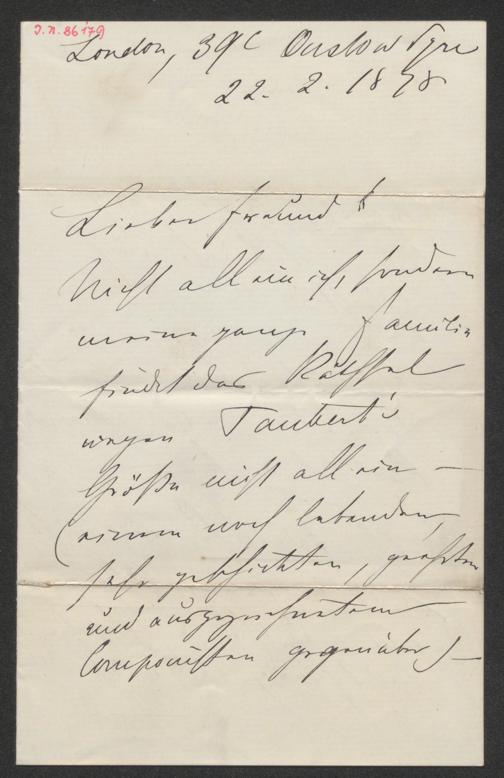 J.N. 86179
London, 39c Onslow Sqre
22. 2. 1878
Lieber Freund!
Nicht allein ich, sondern
meine ganze Familie
findet das Räthsel
wegen Taubert's
Größe nicht allein –
(einem noch lebenden,
sehr geschickten, geehrten
und ausgezeichneten
Componisten gegenüber) –